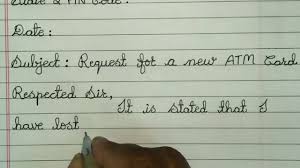 & PIN Code:
Date:
Subject: Request for a new ATM Card
Respected Sir,
It is stated that I
have lost